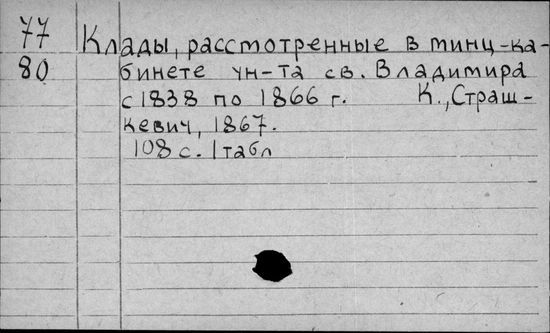 77 Клады, рассмотренные в минц-ка-
80 бинете ун-та св. Владимира
с 1838 по 1866 г. К., Страш-
кевич, 1867.
108 с. 1 табл